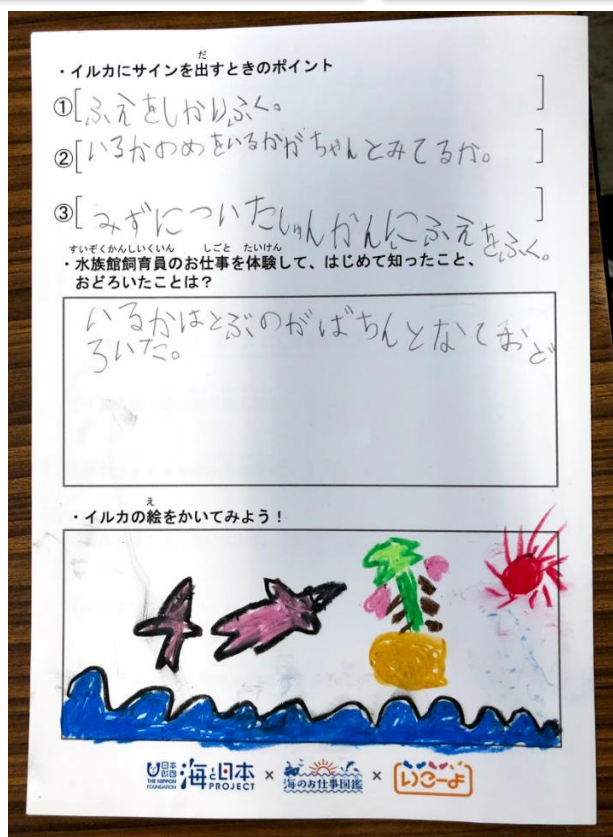 だ
・イルカにサインを出すときのポイント
①[ふえをしかりふく。]
②[いるかのめをいるかがちゃんとみてるか。]
③[みずについたしゅんかんにふえをふく。]
すいぞくかんしいくいん しごと たいけん
・水族館飼育員のお仕事を体験して、はじめて知ったこと、
おどろいたことは？
いるかはとぶのがばちんとなておど
ろいた。
え
・イルカの絵をかいてみよう！
日本財団 THE NIPPON FOUNDATION 海と日本 PROJECT × 海のお仕事図鑑 × いこーよ